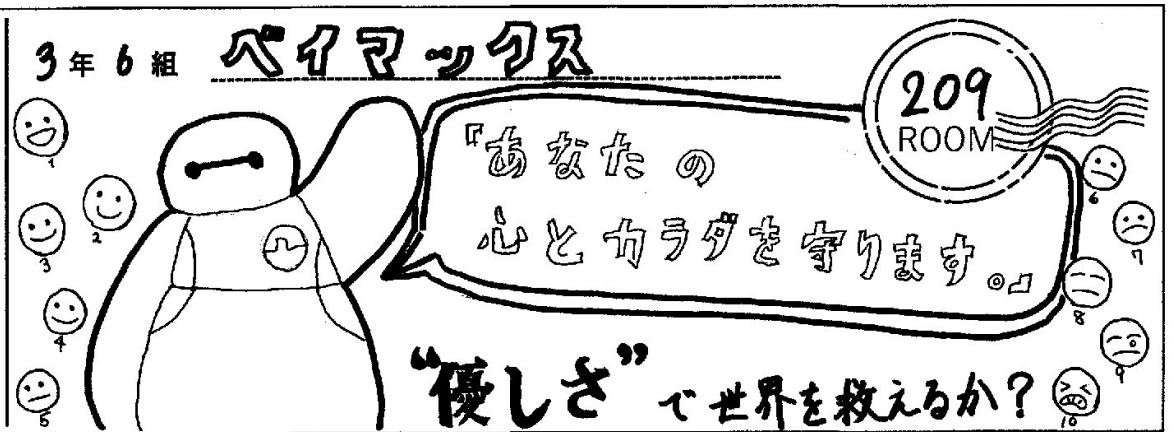 3年6組 ベイマックス
209
ROOM
『あなたの
心とカラダを守ります。』
“優しさ”で世界を救えるか?
1
2
3
4
5
6
7
8
9
10